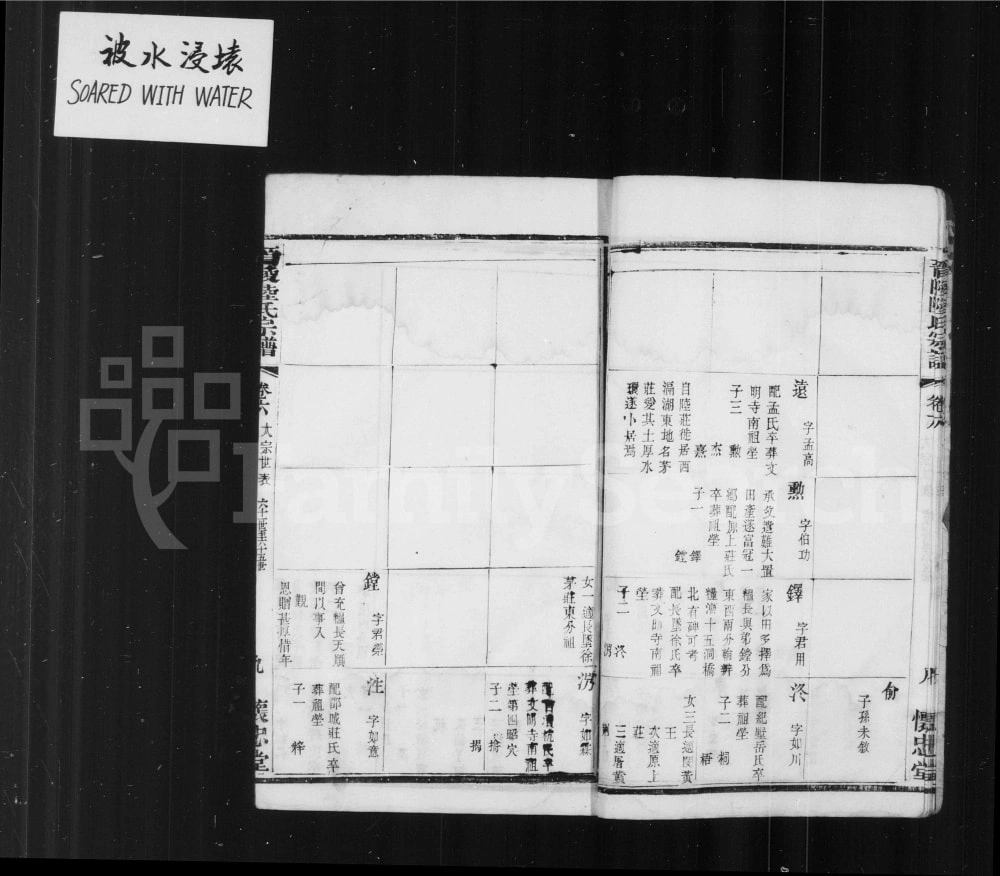 被水浸壞
SOARED WITH WATER
晉陵陸氏宗譜
卷六
懷忠堂
俞
子孫未敘
遠 字孟高
配孟氏卒葬文
明寺南祖塋
子三 勲
杰
熹
自陸莊徙居西
滆湖東地名茅
莊愛其土厚水
環遂卜居焉
勲 字伯功
承父遺雖大置
田產遂富冠一
鄉配原上莊氏
卒葬祖塋
子一 鐸
鏜
鐸 字君用
家以田多擇為
糧長與弟鏜分
東西兩分輸辦
糧漕十五洞橋
北有碑可考
配長墜徐氏卒
葬文明寺南祖
塋
子二 泈
淓
女一適長墜徐
茅莊東分祖
泈 字如川
配 岳氏卒
葬祖塋
子二 桐
梧
女三長適 黃
王
次適原上
莊
三適屠黨
淓 字如霖
氏卒
葬文明寺南祖
塋第四 穴
子二 

鏜 字君榮
曾充糧長天順
間以事入
覲
恩賜甚厚惜年
注 字如意
配 城莊氏卒
葬祖塋
子一 梓
晉陵陸氏宗譜
卷六 大宗世表 六十一世至六十五世
九 懷忠堂
FamilySearch